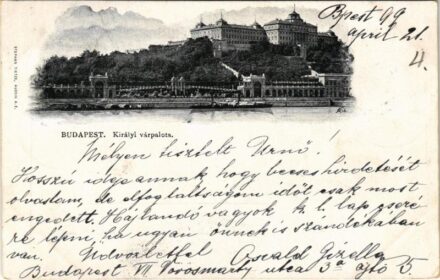 Bpest 99
april 21.
BUDAPEST. Királyi várpalota.
Mélyen tisztelt Urnő!
Hosszú ideje annak, hogy becses hirdetését
olvastam, de elfoglaltságom időt csak most
engedett. Hajlandó vagyok k. l. lap cseré-
re lépni, ha ugyan önnek is szándékában
van. Üdvözlettel Osvald Gizella
Budapest VI Vörösmarty utca 3 ajtó 5.